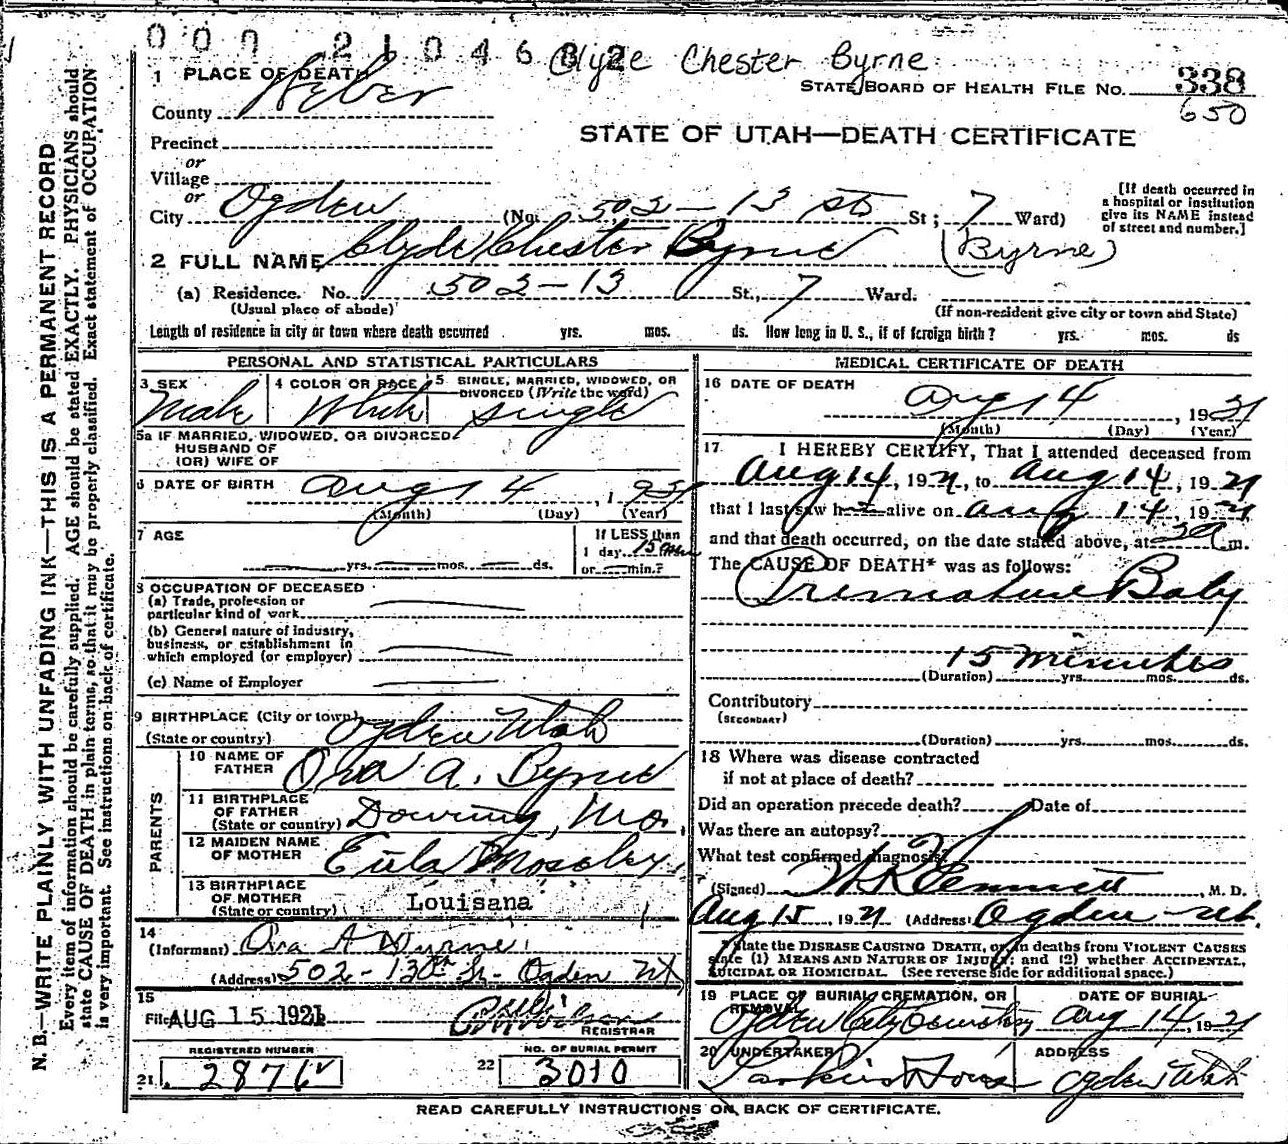 000 2104682
Clyde Chester Byrne
1 PLACE OF DEATH
STATE BOARD OF HEALTH FILE No. 338
County Weber
650
Precinct
STATE OF UTAH—DEATH CERTIFICATE
or
Village
or
City Ogden (No. 502-13 St St; 7 Ward)
[If death occurred in
a hospital or institution
give its NAME instead
of street and number.]
2 FULL NAME Clyde Chester Byrne (Byrne)
(a) Residence. No. 502-13 St., 7 Ward.
(Usual place of abode) (If non-resident give city or town and State)
Length of residence in city or town where death occurred yrs. mos. ds. How long in U. S., if of foreign birth? yrs. mos. ds
PERSONAL AND STATISTICAL PARTICULARS
3 SEX Male
4 COLOR OR RACE White
5 SINGLE, MARRIED, WIDOWED, OR
DIVORCED (Write the word) Single
5a IF MARRIED, WIDOWED, OR DIVORCED
HUSBAND OF
(OR) WIFE OF
6 DATE OF BIRTH Aug 14, 1921
(Month) (Day) (Year)
7 AGE
yrs. mos. ds.
If LESS than
1 day 15 min
or min.?
8 OCCUPATION OF DECEASED
(a) Trade, profession or
particular kind of work
(b) General nature of industry,
business, or establishment in
which employed (or employer)
(c) Name of Employer
9 BIRTHPLACE (City or town)
(State or country) Ogden Utah
PARENTS
10 NAME OF
FATHER Ora A. Byrne
11 BIRTHPLACE
OF FATHER
(State or country) Downing, Mo.
12 MAIDEN NAME
OF MOTHER Eula Moseley
13 BIRTHPLACE
OF MOTHER
(State or country) Louisana
14
(Informant) Ora A Byrne
(Address) 502-13th St- Ogden Ut
15
File AUG 15 1921
REGISTRAR
REGISTERED NUMBER
21 2876
NO. OF BURIAL PERMIT
22 3010
MEDICAL CERTIFICATE OF DEATH
16 DATE OF DEATH
Aug 14, 1921
(Month) (Day) (Year)
17 I HEREBY CERTIFY, That I attended deceased from
Aug 14, 1921, to Aug 14, 1921
that I last saw h alive on Aug 14, 1921
and that death occurred, on the date stated above, at 3 a m.
The CAUSE OF DEATH* was as follows:
Premature Baby
15 minutes
(Duration) yrs. mos. ds.
Contributory
(SECONDARY)
(Duration) yrs. mos. ds.
18 Where was disease contracted
if not at place of death?
Did an operation precede death? Date of
Was there an autopsy?
What test confirmed diagnosis?
(Signed) M. D.
Aug 15, 1921 (Address) Ogden Ut.
*State the DISEASE CAUSING DEATH, or, in deaths from VIOLENT CAUSES
state (1) MEANS AND NATURE OF INJURY; and (2) whether ACCIDENTAL,
SUICIDAL OR HOMICIDAL. (See reverse side for additional space.)
19 PLACE OF BURIAL, CREMATION, OR
REMOVAL
DATE OF BURIAL
Ogden City Cemetery Aug 14, 1921
20 UNDERTAKER ADDRESS
Larkin & Sons Ogden Utah
READ CAREFULLY INSTRUCTIONS ON BACK OF CERTIFICATE.
N. B.—WRITE PLAINLY WITH UNFADING INK—THIS IS A PERMANENT RECORD
Every item of information should be carefully supplied. AGE should be stated EXACTLY. PHYSICIANS should
state CAUSE OF DEATH in plain terms, so that it may be properly classified. Exact statement of OCCUPATION
is very important. See instructions on back of certificate.